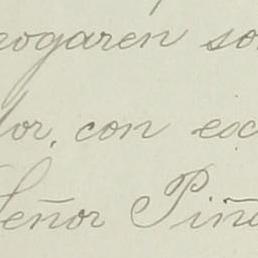 rogaren so
dor, con esc
Señor Piñe